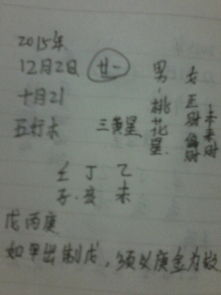 2015年
12月2日 廿一
十月21
五行木 三黄星
男 桃花星
女 正财 偏财
壬 丁 乙
子 亥 未
戊丙庚
如甲出制戊,须以庚金为